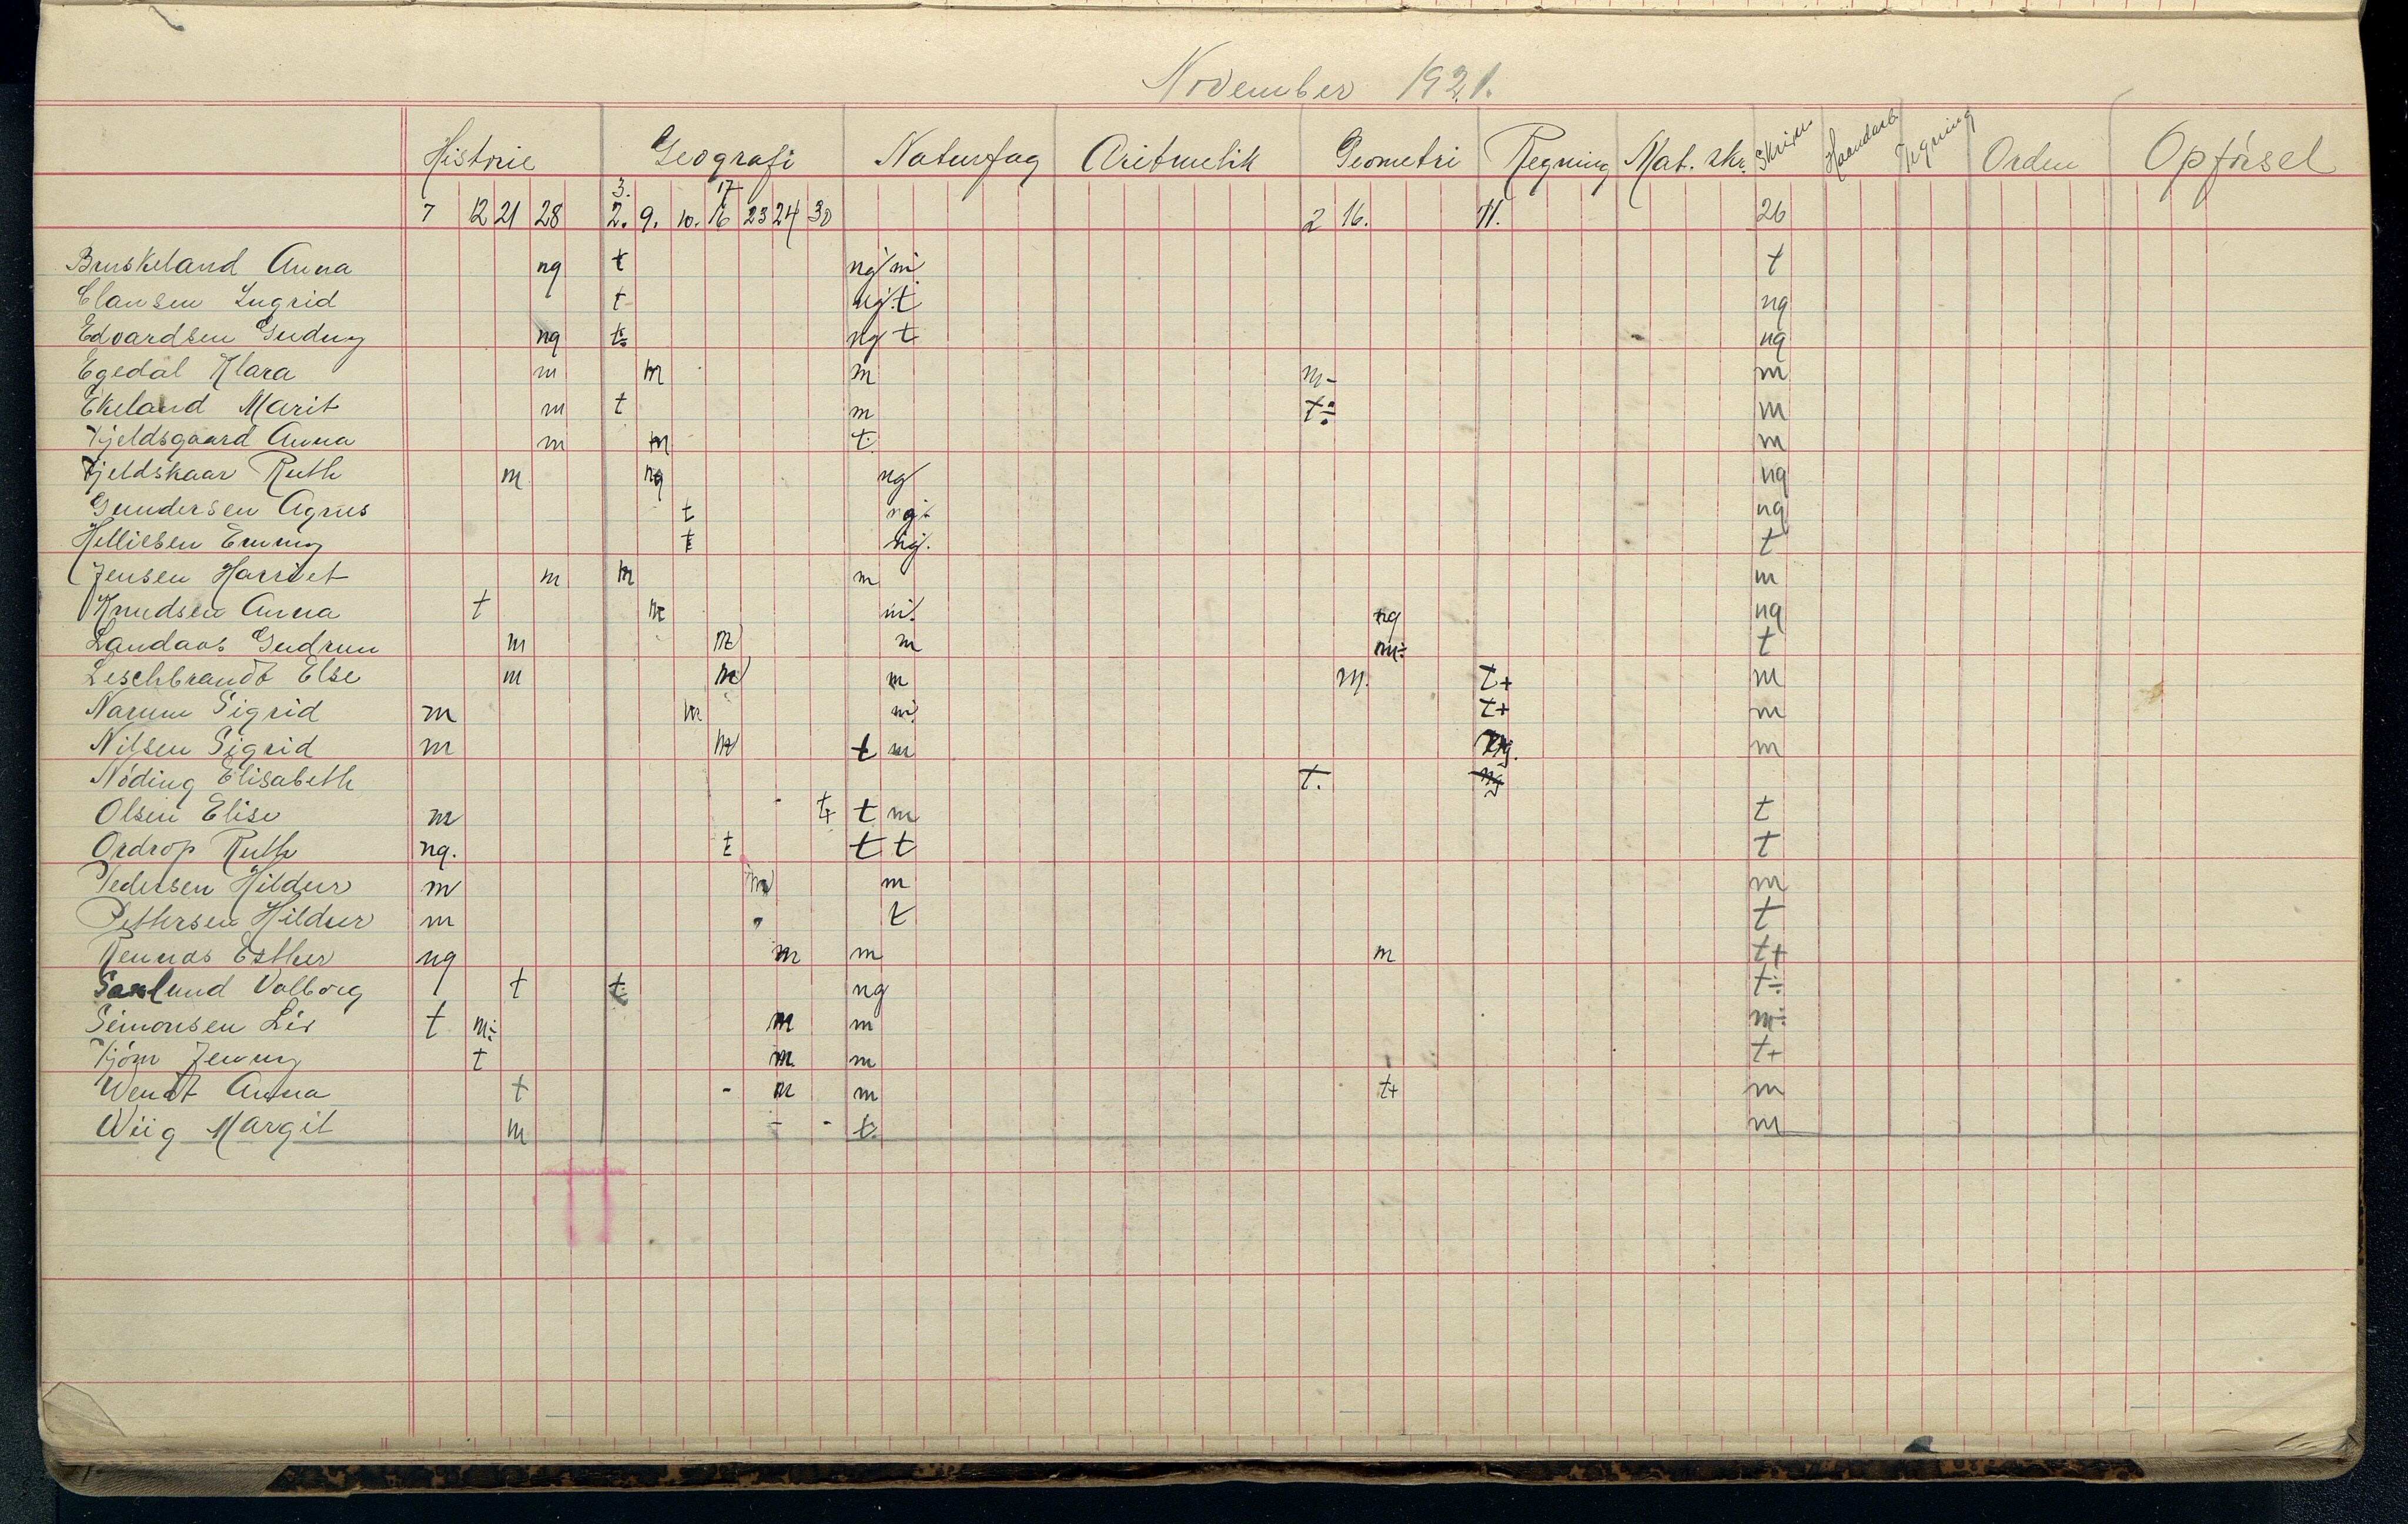 November 1921.
Historie Geografi Naturfag Aritmetik Geometri Regning Mat. skr. Skriv. Haandarb. Tegning Orden Opførsel
3. 17
7 12 21 28 2. 9. 10. 16 23 24 30 2 16. 11. 26
Bruskeland Anna ng t ng m t
Clausen Ingrid t ng t ng
Edvardsen Gudny ng t÷ ng t ng
Egedal Klara m m m m- m
Ekeland Marit m t m t÷ m
Fjeldsgaard Anna m m t. m
Fjeldskaar Ruth m ng ng ng
Gundersen Agnes t ng ng
Helliesen Emmy t ng. t
Jensen Harriet m m m m
Knudsen Anna t m m ng ng
Landaas Gudrun m m m m÷ t
Leschbrandt Else m m m m. t+ m
Narum Sigrid m m m t+ m
Nilsen Sigrid m m t m ng. m
Nöding Elisabeth t. ng
Olsen Elise m t+ t m t
Ordrop Ruth ng. t t t t
Pedersen Hildur m m m m
Pettersen Hildur m t t
Rennas Esther ng m m m t+
Saxlund Valborg t t ng t÷
Simonsen Liv t m÷ m m m÷
Tjøm Jenny t m m t+
Wendt Anna t - m m t+ m
Wiig Margit m - - t. m